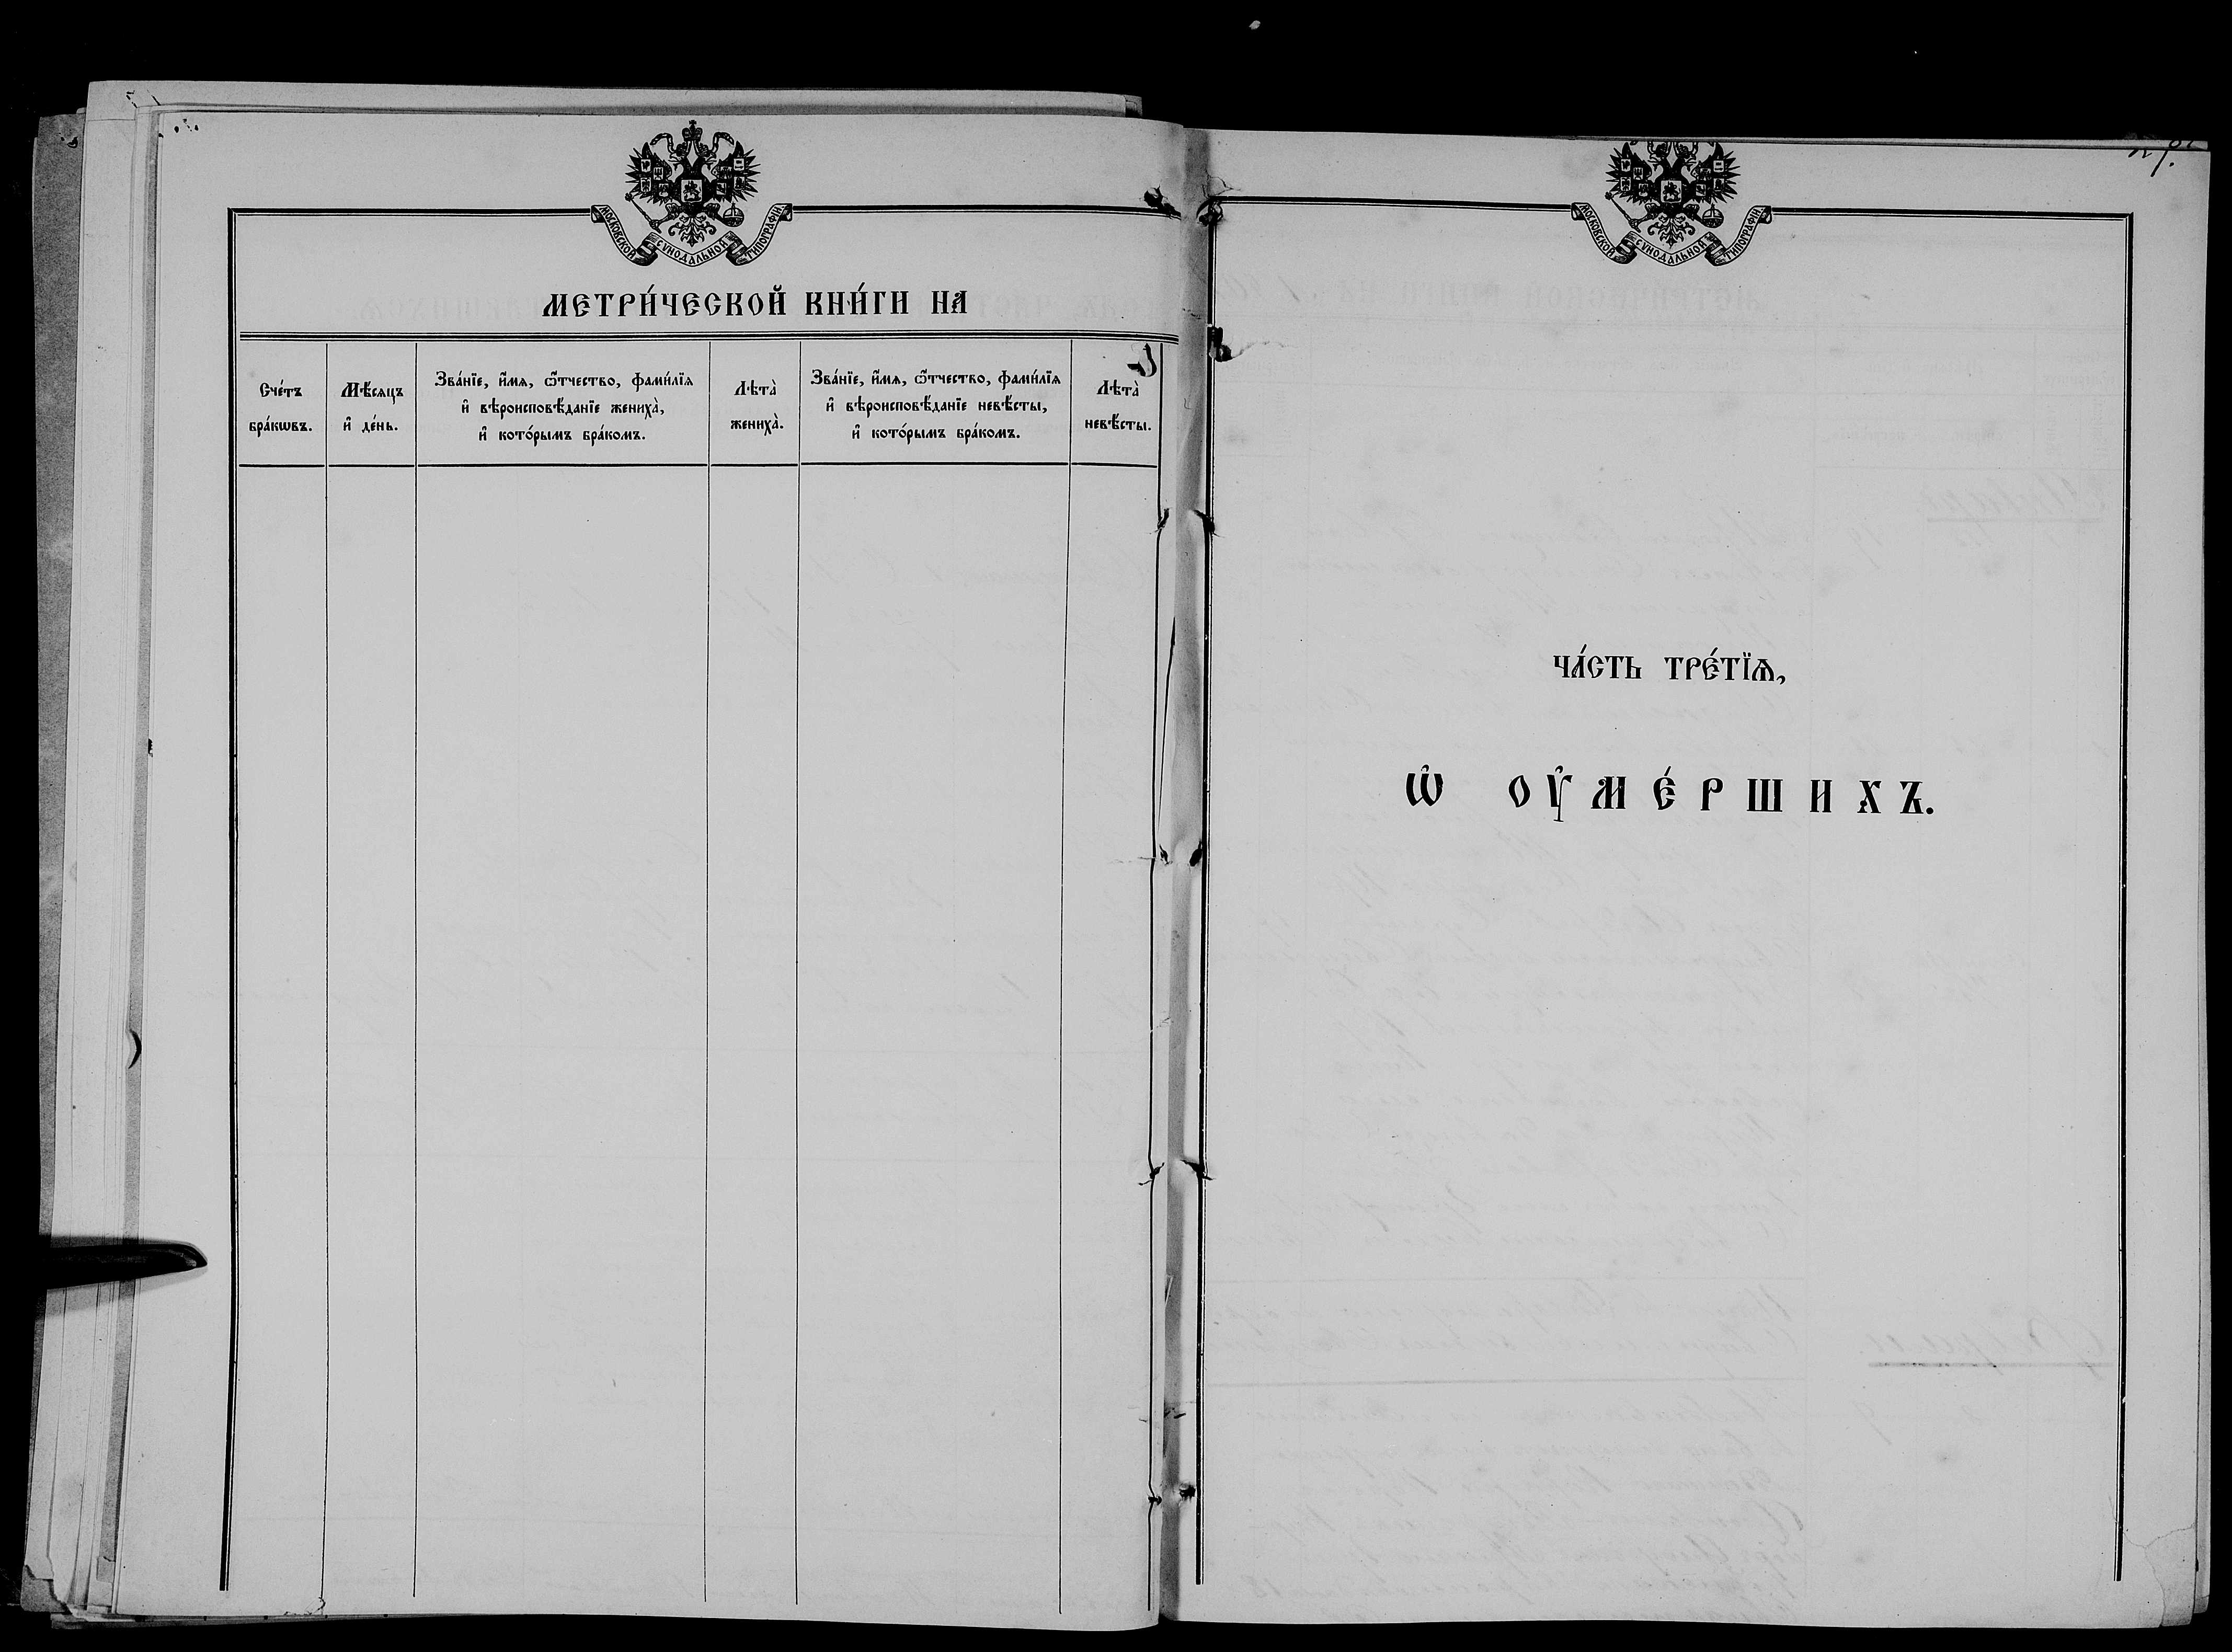 МОСКОВСКОЙ СѴНОДАЛЬНОЙ ТИПОГРАФІИ
МЕТРИ́ЧЕСКОЙ КНИ́ГИ НА
Сче́тъ
бра́кѡвъ.
Мѣ́сяцъ
и҆ де́нь.
Зва́нїе, и҆́мѧ, ѻ҆́тчество, фамѝлїѧ
и҆ вѣроисповѣ́данїе жениха̀,
и҆ кото́рымъ бра́комъ.
Лѣта̀
жениха̀.
Зва́нїе, и҆́мѧ, ѻ҆́тчество, фамѝлїѧ
и҆ вѣроисповѣ́данїе невѣ́сты,
и҆ кото́рымъ бра́комъ.
Лѣта̀
невѣ́сты.
МОСКОВСКОЙ СѴНОДАЛЬНОЙ ТИПОГРАФІИ
ЧА́СТЬ ТРЕ́ТЇѦ,
Ѡ҆ ОУ҆МЕ́РШИХЪ.